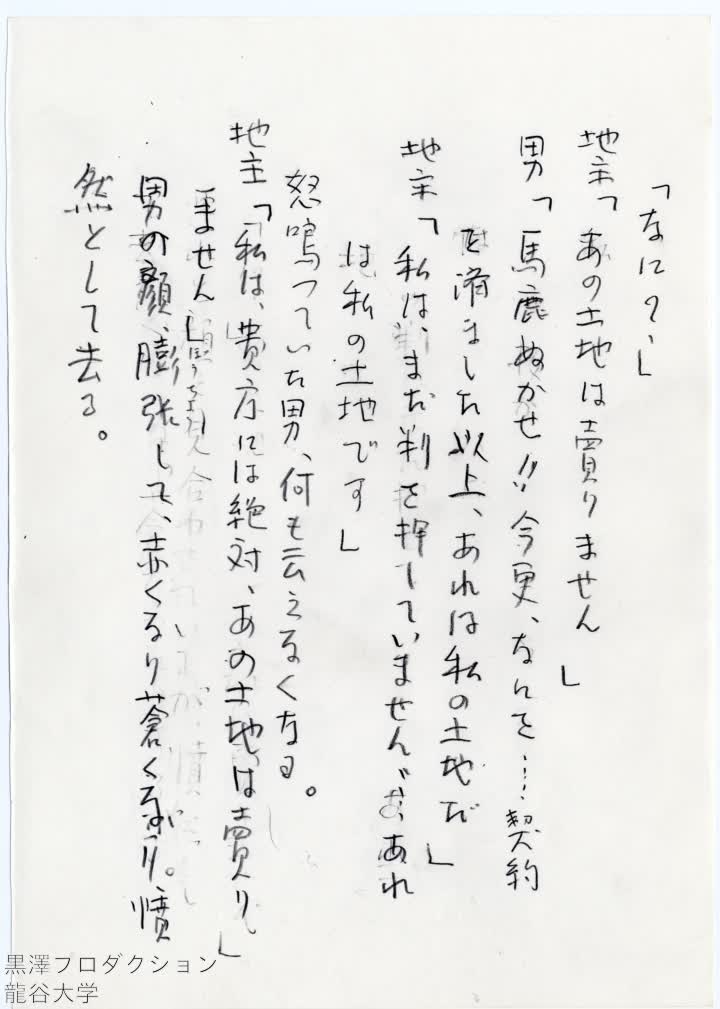 「なに？」
地主「あの土地は賣りません」
男「馬鹿ぬかせ!! 今更、なんで…契約
を済ました以上、あれは私の土地だ」
地主「私は、まだ判を押していません、あれ
は私の土地です」
怒鳴っていた男、何も云えなくなる。
地主「私は、貴方には絶対、あの土地は賣り」
ません」
男の顔、膨張して、赤くなり蒼くなり。憤
然として去る。
黒澤プロダクション
龍谷大学